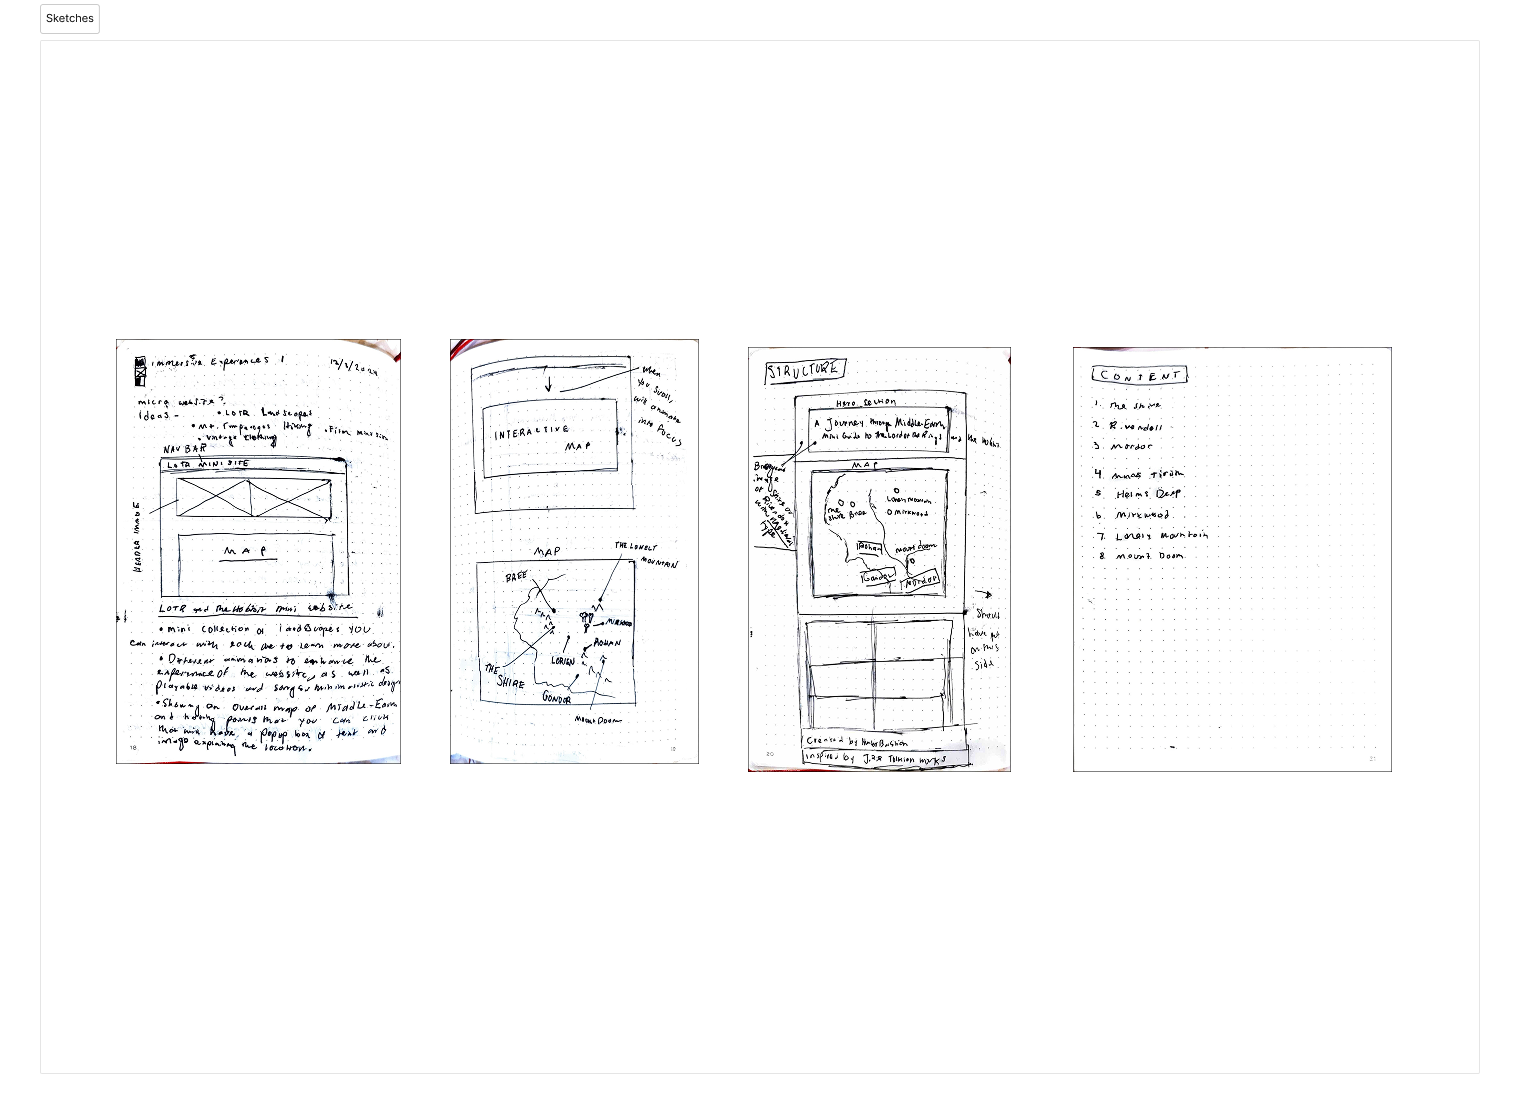 Sketches
Immersive Experiences
12/3/2024
micro website?
Ideas -
• LOTR Landscapes
• Mt. Hiking
• Film
• Vintage Clothing
NAV BAR
LOTR MINI SITE
HEADER IMAGE
MAP
LOTR and the Hobbit mini website
• mini collection of landscapes you
can interact with each one to learn more about.
• Different animations to enhance the
experience of the website, as well as
playable videos and songs, minimalistic design
• Showing an overall map of Middle-Earth
and having points that you can click
that will have a popup box of text and
image explaining the location.
18
when
you scroll,
will animate
into focus
INTERACTIVE
MAP
MAP
THE LONELY
MOUNTAIN
BREE
MIRKWOOD
ROHAN
LORIEN
THE
SHIRE
GONDOR
MOUNT DOOM
19
STRUCTURE
Hero Section
A Journey through Middle-Earth
mini Guide to the Lord of the Rings and the Hobbit
image
of
Shire or
with
Type
MAP
Lonely Mountain
The
Shire Bree
Mirkwood
Rohan
Mount Doom
Gondor
Mordor
Should
have
on this
side
Created by
Inspired by J.R.R Tolkien works
20
CONTENT
1. The Shire
2. Rivendell
3. Mordor
4. Minas Tirith
5. Helms Deep
6. Mirkwood
7. Lonely Mountain
8. Mount Doom
21